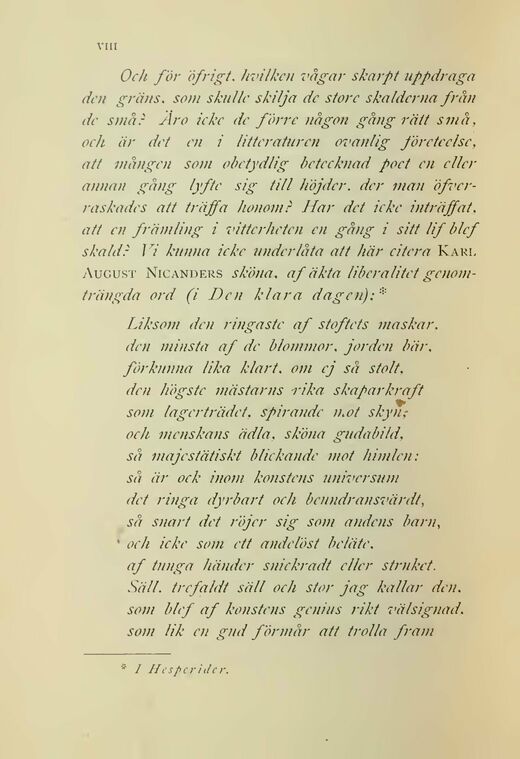 VIII
Och för öfrigt, hvilken vågar skarpt uppdraga
den gräns, som skulle skilja de store skalderna från
de små? Äro icke de förre någon gång rätt små,
och är det en i litteraturen ovanlig företeelse,
att mången som obetydlig betecknad poet en eller
annan gång lyfte sig till höjder, der man öfver-
raskades att träffa honom? Har det icke inträffat,
att en främling i vitterheten en gång i sitt lif blef
skald? Vi kunna icke underlåta att här citera KARL
AUGUST NICANDERS sköna, af äkta liberalitet genom-
trängda ord (i Den klara dagen):*
Liksom den ringaste af stoftets maskar,
den minsta af de blommor, jorden bär,
förkunna lika klart, om ej så stolt,
den högste mästarns rika skaparkraft
som lagerträdet, spirande mot skyn;
och menskans ädla, sköna gudabild,
så majestätiskt blickande mot himlen:
så är ock inom konstens universum
det ringa dyrbart och beundransvärdt,
så snart det röjer sig som andens barn,
och icke som ett andelöst beläte,
af tunga händer snickradt eller struket.
Säll, trefaldt säll och stor jag kallar den,
som blef af konstens genius rikt välsignad,
som lik en gud förmår att trolla fram
* I Hesperider.